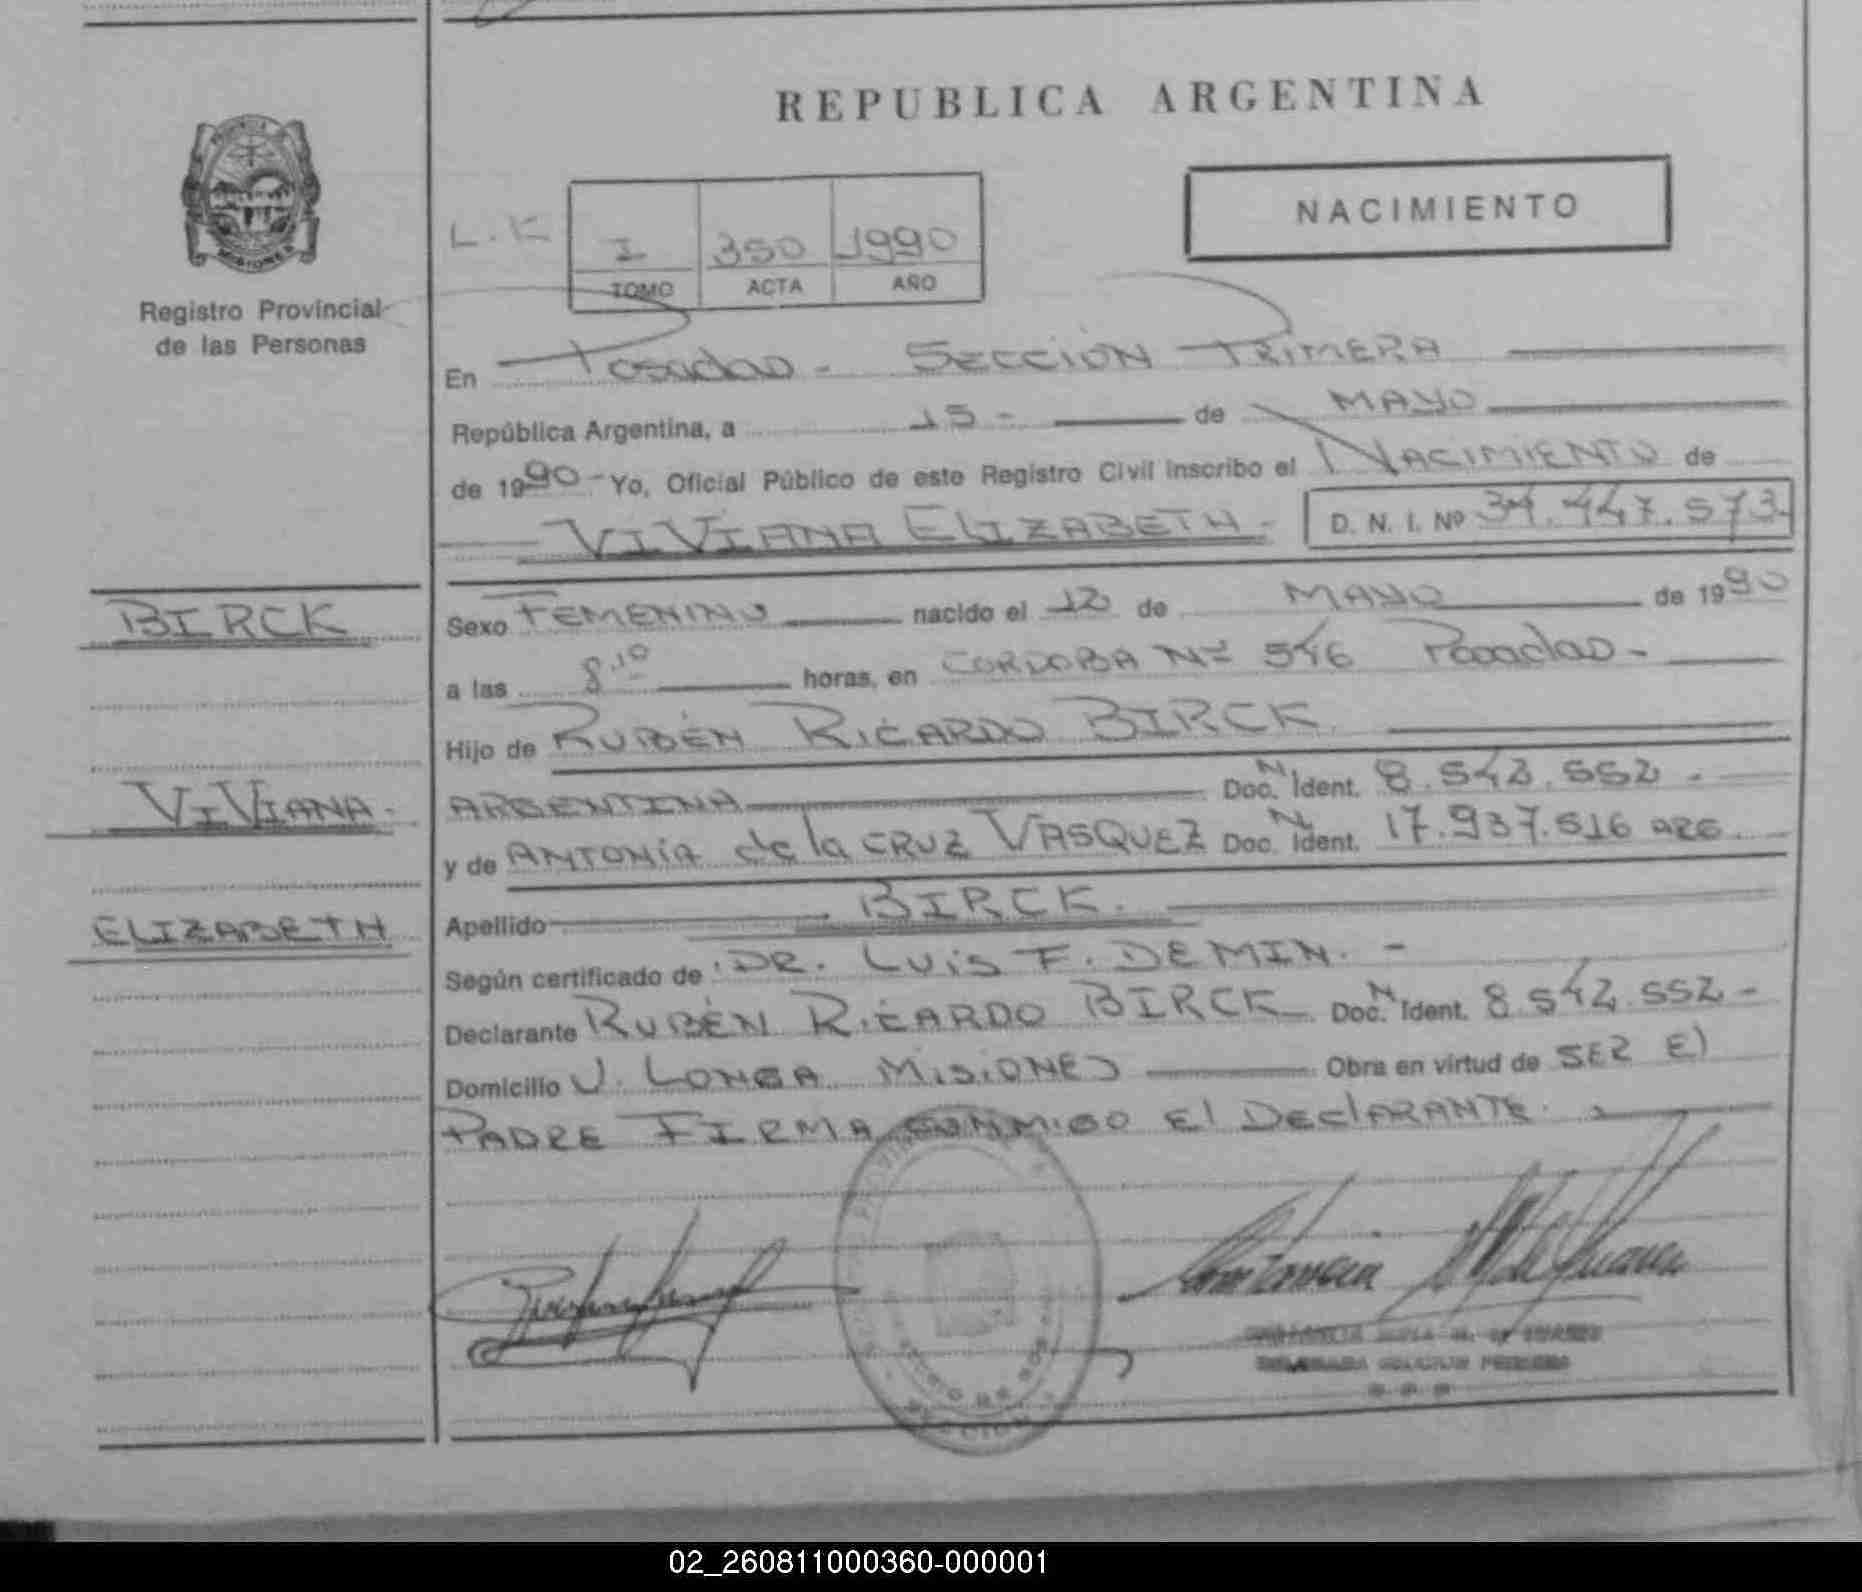 REPUBLICA ARGENTINA
NACIMIENTO
L.K
I 350 1990
TOMO ACTA AÑO
Registro Provincial
de las Personas
En Posadas - SECCION PRIMERA
República Argentina, a 15 - de MAYO
de 1990 - Yo, Oficial Público de este Registro Civil inscribo el NACIMIENTO de
VIVIANA ELIZABETH - D. N. I. Nº 34.447.573
BIRCK
VIVIANA -
ELIZABETH
Sexo FEMENINO nacido el 12 de MAYO de 1990
a las 8.10 horas, en CORDOBA Nº 546 Posadas -
Hijo de RUBÉN RICARDO BIRCK
ARGENTINA Doc. N Ident. 8.542.552 -
y de ANTONIA de la CRUZ VASQUEZ Doc. N Ident. 17.937.516 ARG
Apellido BIRCK.
Según certificado de DR. LUIS F. DEMIN. -
Declarante RUBÉN RICARDO BIRCK Doc. N Ident. 8.542.552 -
Domicilio J. LONGA MISIONES Obra en virtud de SER El
PADRE FIRMA CONMIGO El DEClARANTE.
02_260811000360-000001